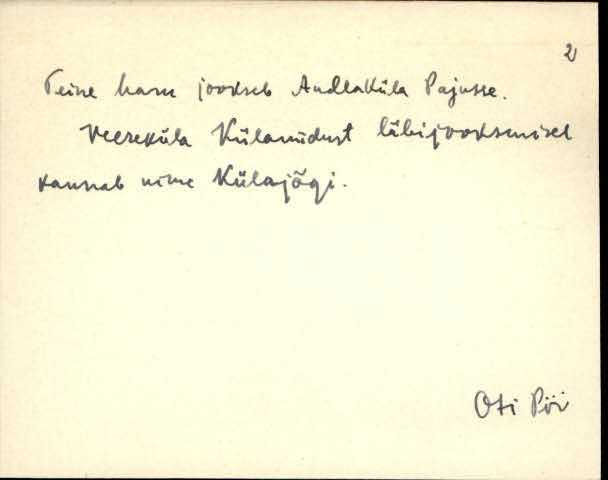 2
Teine haru jookseb Andlaküla Pajusse.
Veereküla Külamidust läbijooksmisel
kannab nime Külajõgi.
Oti Pöi